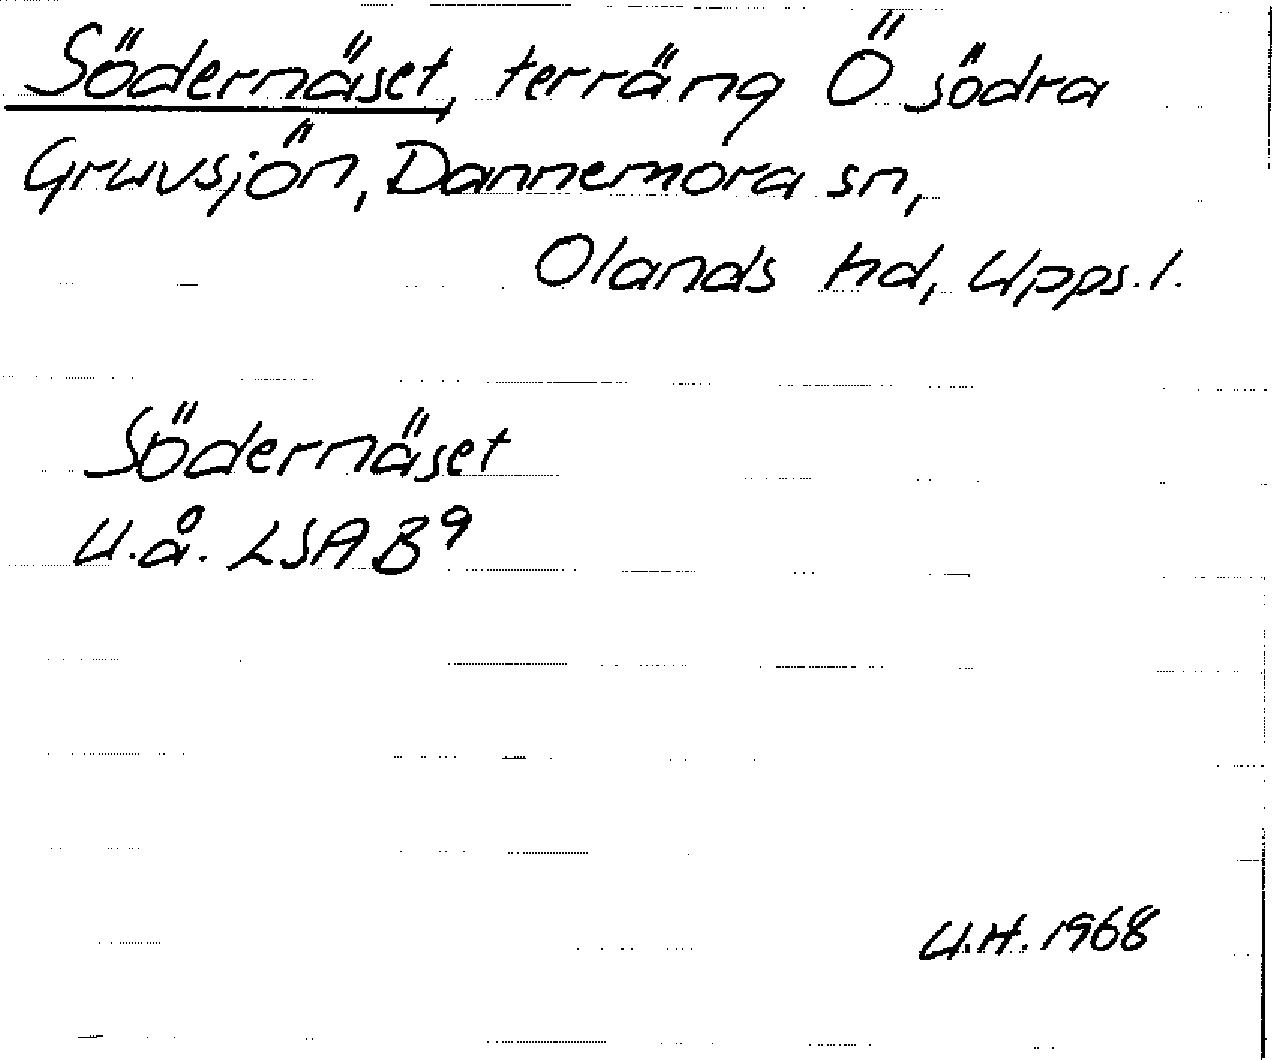 Södernäset, terräng Ö södra
Gruvsjön, Dannemora sn,
Olands hd, Upps. l.
Södernäset
U.å. LSA B9
U.H. 1968